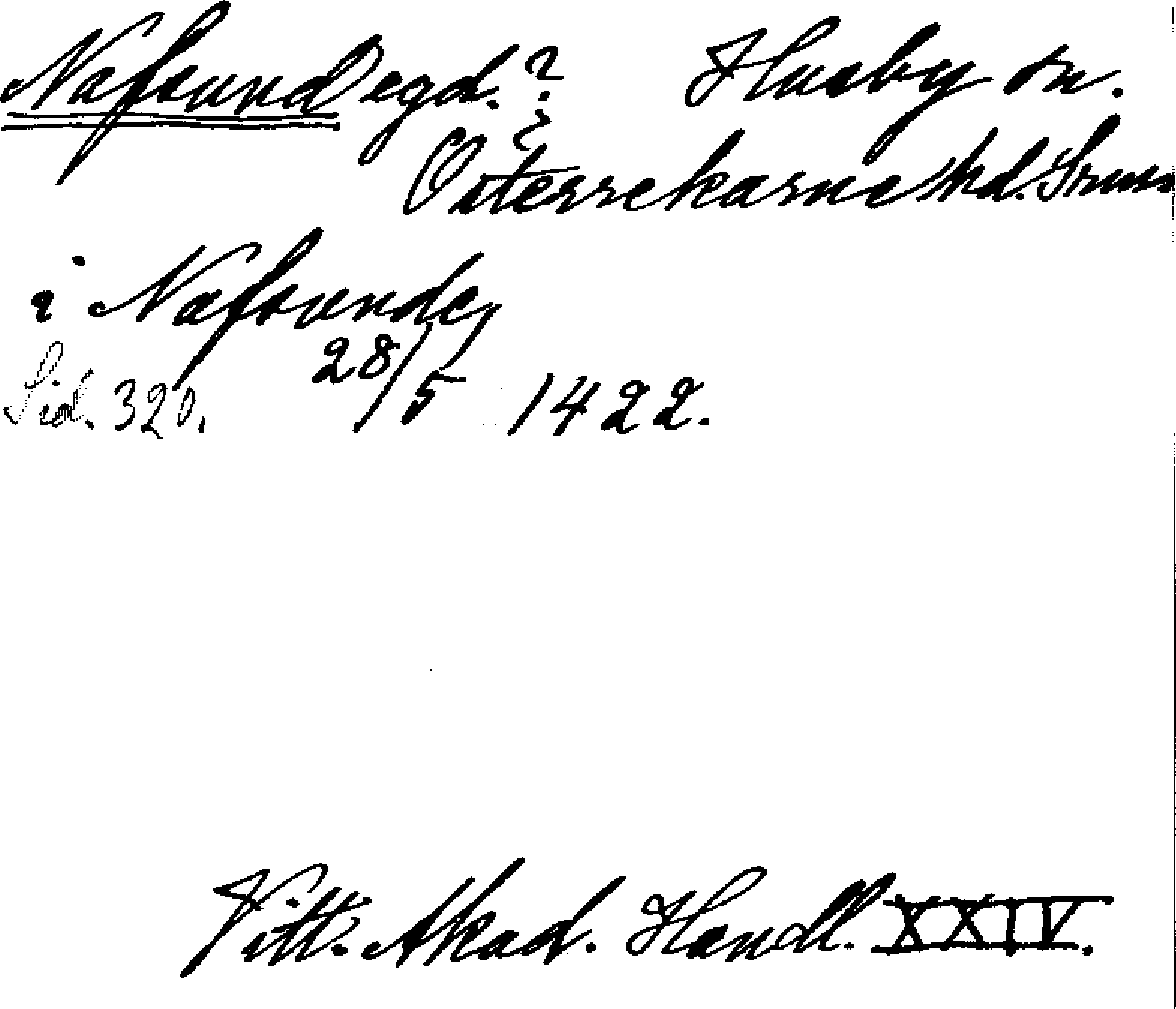 Nafsund egd.? Husby sn.
Österrekarne hd. Srml
i Nafsunde,
Sid. 320. 28/5 1422.
Vitt. Akad. Handl. XXIV.